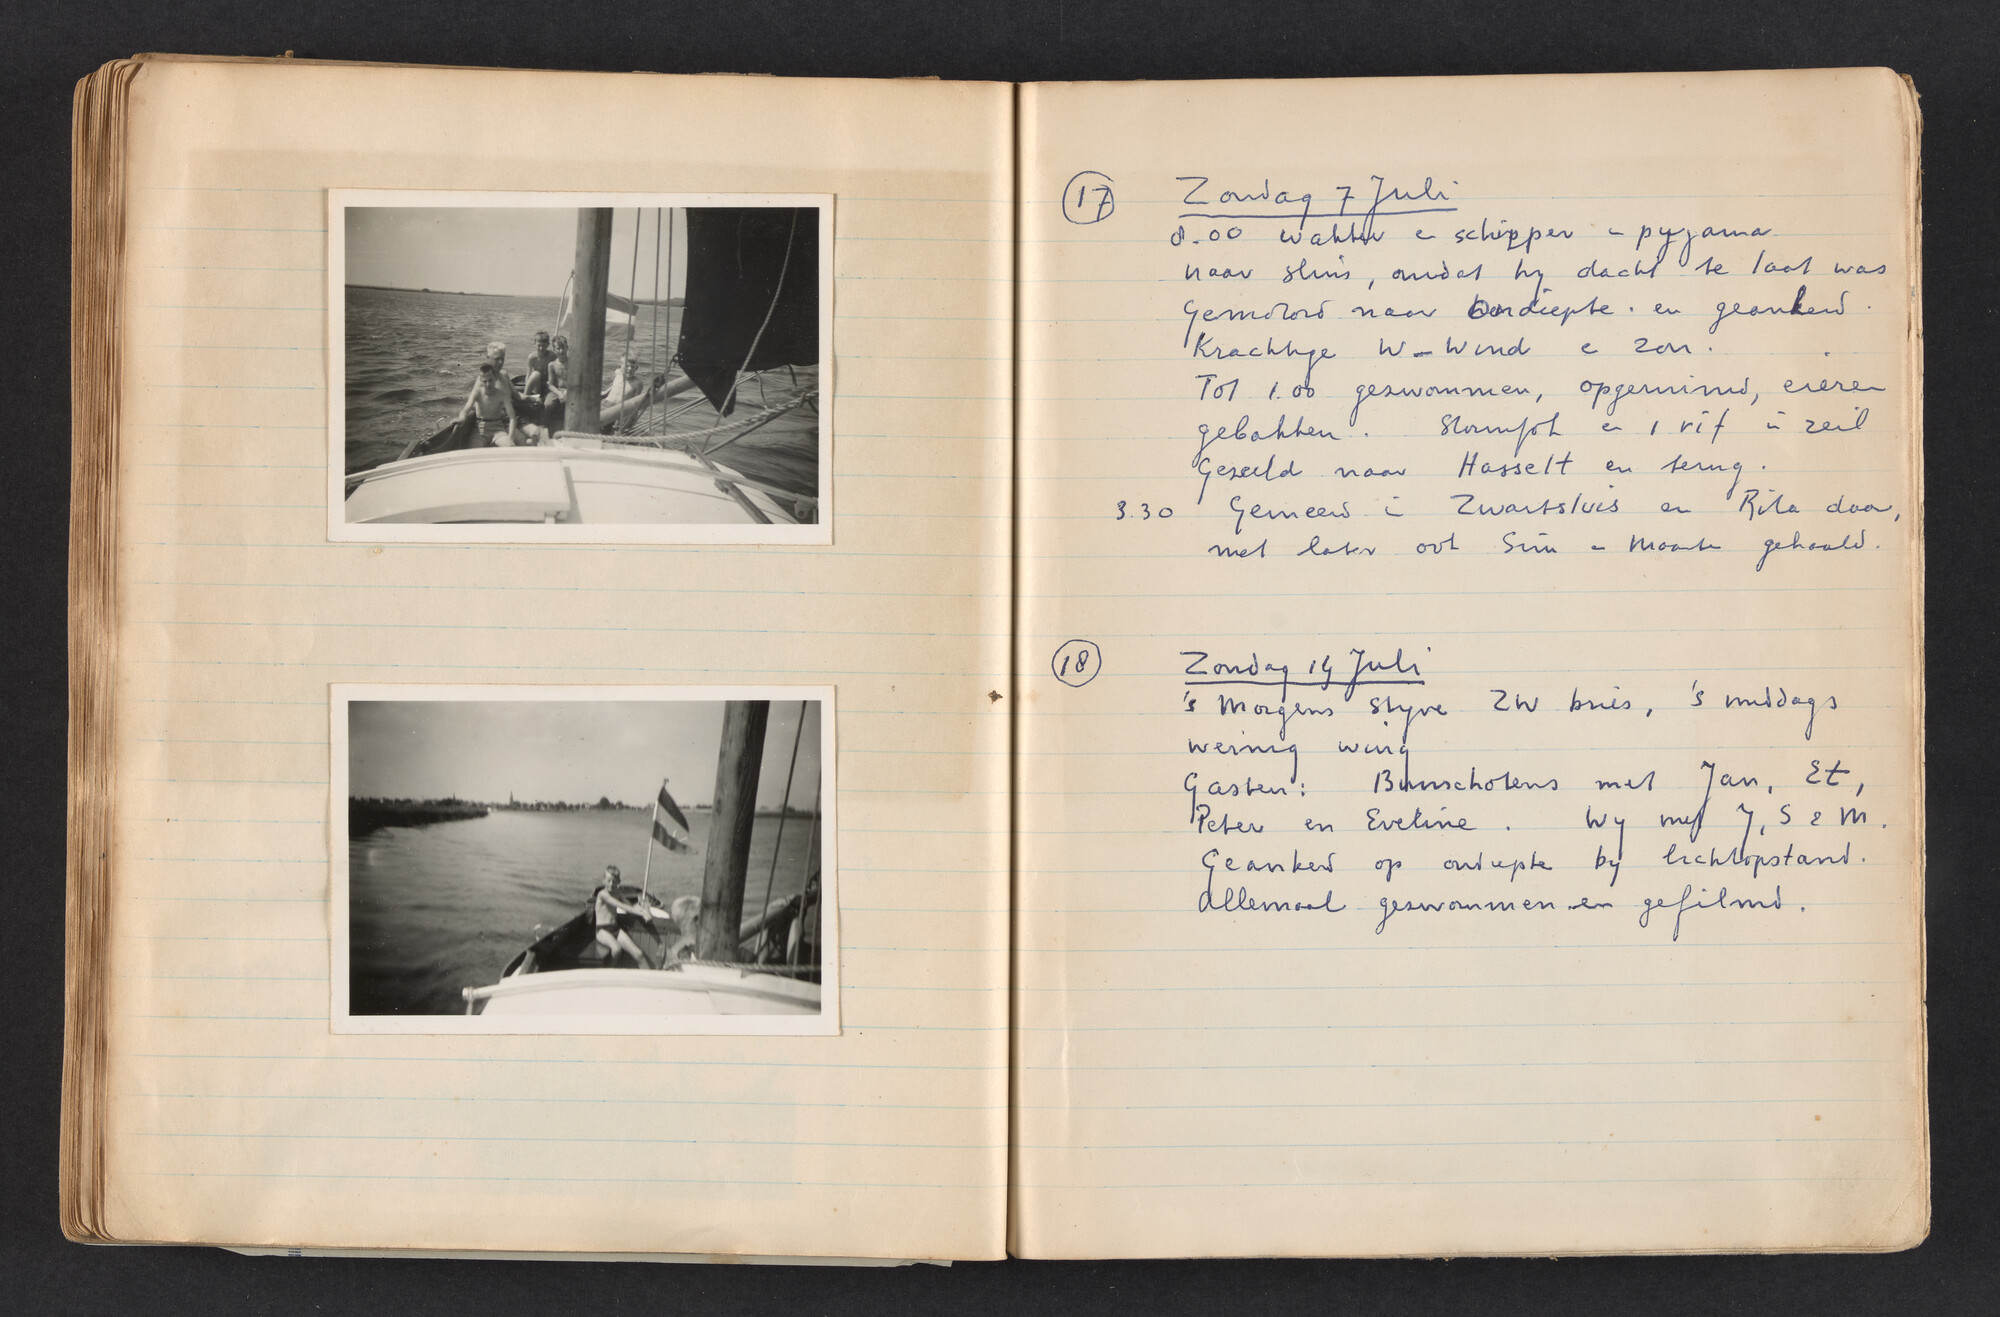 17 Zondag 7 Juli
8.00 wakker e schipper in pyjama
naar sluis, omdat hy dacht te laat was
Gemotord naar ondiepte. en geankerd.
Krachtige W-Wind e zon.
Tot 1.00 gezwommen, opgeruimd, eieren
gebakken. Stormfok en 1 rif in zeil
Gezeild naar Hasselt en terug.
3.30 Gemeerd in Zwartsluis en Rita daar,
met later ook Sim en Maarten gehaald.
18 Zondag 14 Juli
's Morgens styve ZW bries, 's middags
weinig wing
Gasten: Bunschotens met Jan, Et,
Peter en Eveline. Wy met J, S e M.
Geankerd op ondiepte by lichtopstand.
Allemaal gezwommen en gefilmd.